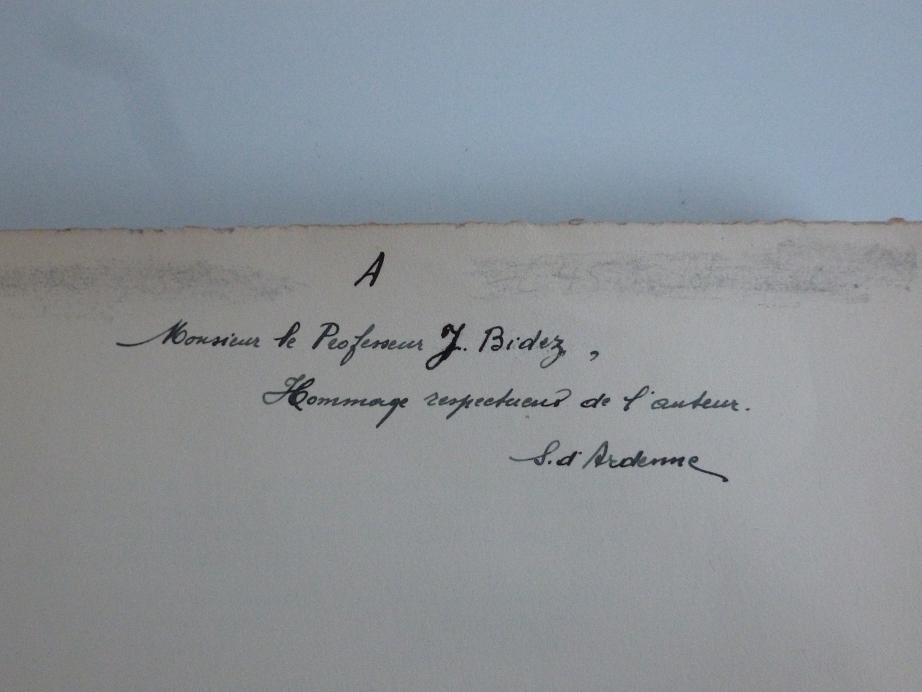 A
Monsieur le Professeur J. Bidez,
Hommage respectueux de l'auteur.
S. d'Ardenne